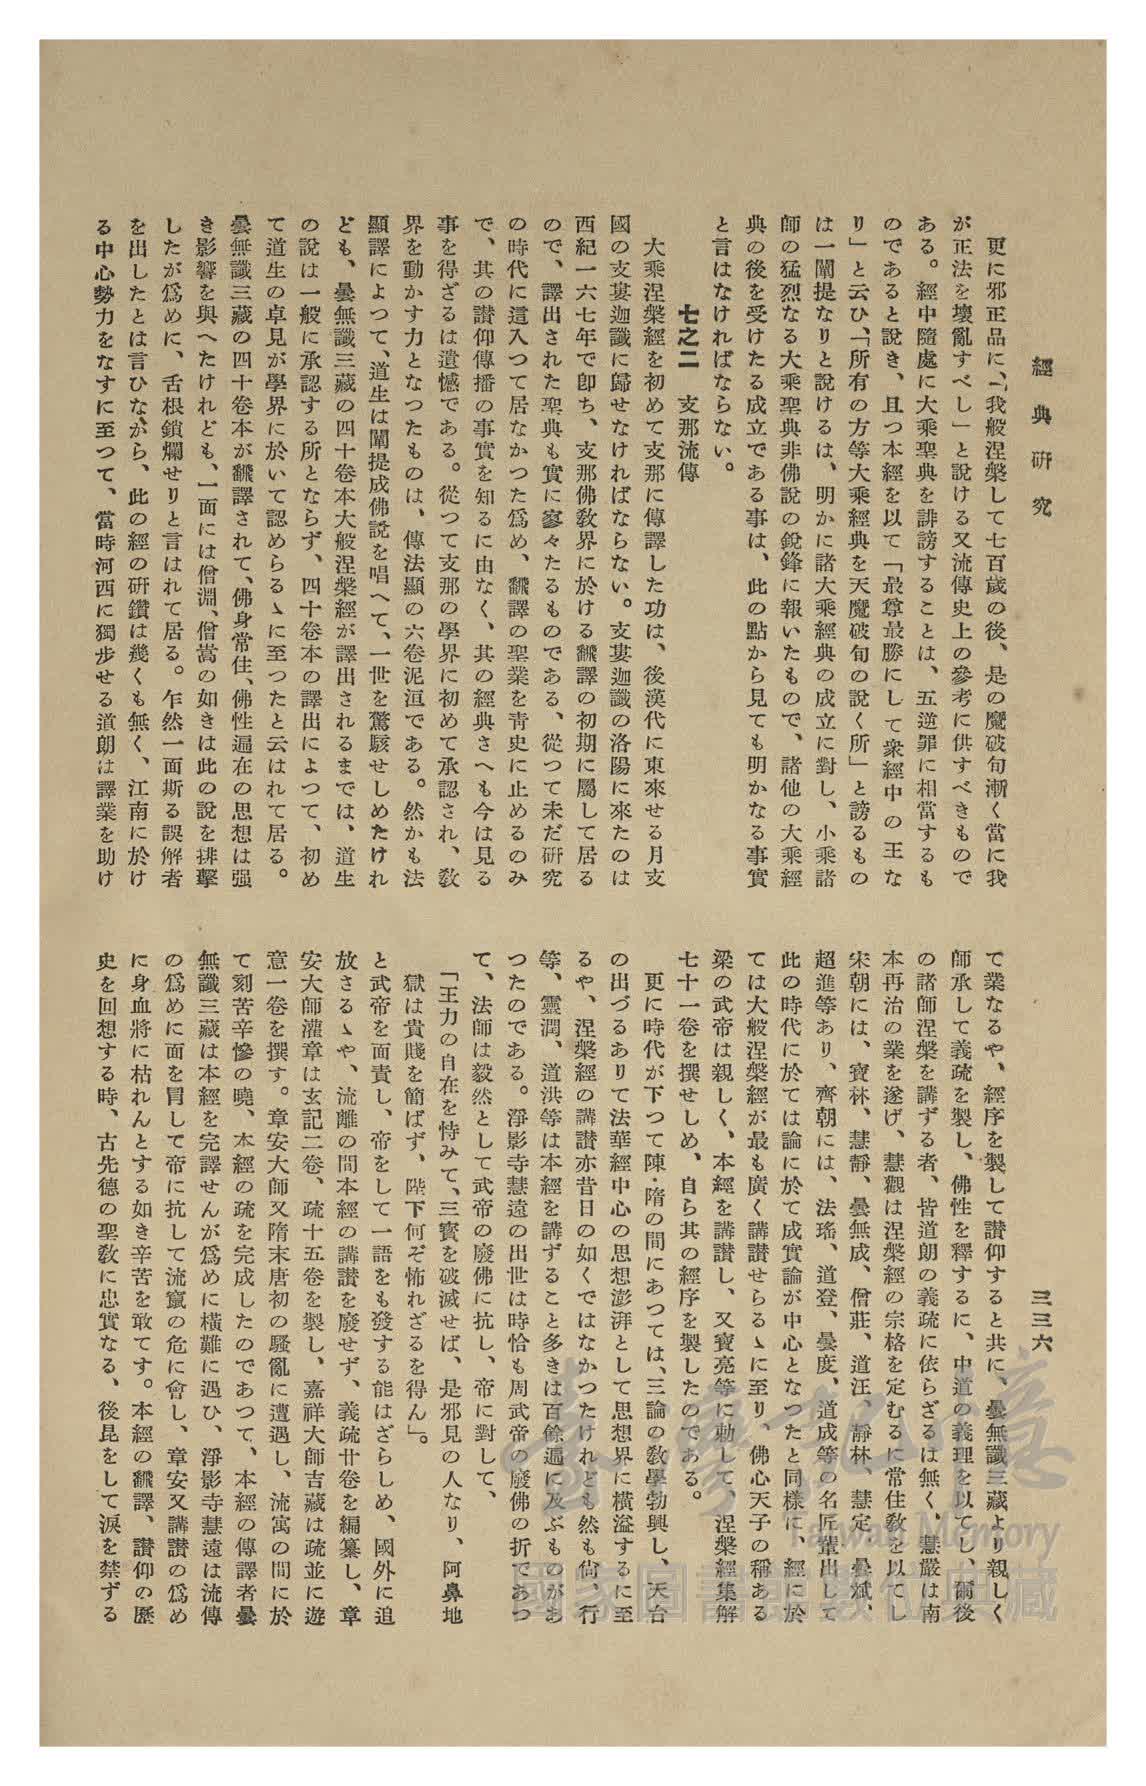 經典研究
三三六
更に邪正品に、「我般涅槃して七百歲の後、是の魔破旬漸く當に我
が正法を壞亂すべし」と說ける又流傳史上の參考に供すべきもので
ある。經中隨處に大乘聖典を誹謗することは、五逆罪に相當するも
のであると說き、且つ本經を以て「最尊最勝にして衆經中の王な
り」と云ひ、「所有の方等大乘經典を天魔破旬の說く所」と謗るもの
は一闡提なりと說けるは、明かに諸大乘經典の成立に對し、小乘諸
師の猛烈なる大乘聖典非佛說の銳鋒に報いたもので、諸他の大乘經
典の後を受けたる成立である事は、此の點から見ても明かなる事實
と言はなければならない。
七之二　支那流傳
大乘涅槃經を初めて支那に傳譯した功は、後漢代に東來せる月支
國の支婁迦讖に歸せなければならない。支婁迦讖の洛陽に來たのは
西紀一六七年で卽ち、支那佛敎界に於ける飜譯の初期に屬して居る
ので、譯出された聖典も實に寥々たるものである、從つて未だ硏究
の時代に這入つて居なかつた爲め、飜譯の聖業を靑史に止めるのみ
で、其の讃仰傳播の事實を知るに由なく、其の經典さへも今は見る
事を得ざるは遺憾である。從つて支那の學界に初めて承認され、敎
界を動かす力となつたものは、傳法顯の六卷泥洹である。然かも法
顯譯によつて、道生は闡提成佛說を唱へて、一世を驚駭せしめたけれ
ども、曇無讖三藏の四十卷本大般涅槃經が譯出されるまでは、道生
の說は一般に承認する所とならず、四十卷本の譯出によつて、初め
て道生の卓見が學界に於いて認めらるゝに至つたと云はれて居る。
曇無讖三藏の四十卷本が飜譯されて、佛身常住、佛性遍在の思想は强
き影響を與へたけれども、一面には僧淵、僧嵩の如きは此の說を排擊
したが爲めに、舌根鎖爛せりと言はれて居る。乍然一面斯る誤解者
を出したとは言ひながら、此の經の硏鑽は幾くも無く、江南に於け
る中心勢力をなすに至つて、當時河西に獨步せる道朗は譯業を助け
て業なるや、經序を製して讃仰すると共に、曇無讖三藏より親しく
師承して義疏を製し、佛性を釋するに、中道の義理を以てし、爾後
の諸師涅槃を講ずる者、皆道朗の義疏に依らざるは無く、慧嚴は南
本再治の業を遂げ、慧觀は涅槃經の宗格を定むるに常住敎を以てし
宋朝には、寶林、慧靜、曇無成、僧莊、道汪、靜林、慧定、曇斌、
超進等あり、齊朝には、法瑤、道登、曇度、道成等の名匠輩出して
此の時代に於ては論に於て成實論が中心となつたと同樣に、經に於
ては大般涅槃經が最も廣く講讃せらるゝに至り、佛心天子の稱ある
梁の武帝は親しく、本經を講讃し、又寶亮等に勅して、涅槃經集解
七十一卷を撰せしめ、自ら其の經序を製したのである。
更に時代が下つて陳・隋の間にあつては、三論の敎學勃興し、天台
の出づるありて法華經中心の思想澎湃として思想界に橫溢するに至
るや、涅槃經の講讃亦昔日の如くではなかつたけれども然も尙、行
等、靈潤、道洪等は本經を講ずること多きは百餘遍に及ぶものがあ
つたのである。淨影寺慧遠の出世は時恰も周武帝の廢佛の折であつ
て、法師は毅然として武帝の廢佛に抗し、帝に對して、
「王力の自在を恃みて、三寶を破滅せば、是邪見の人なり、阿鼻地
獄は貴賤を簡ばず、陛下何ぞ怖れざるを得ん」。
と武帝を面責し、帝をして一語をも發する能はざらしめ、國外に追
放さるゝや、流離の間本經の講讃を廢せず、義疏廿卷を編纂し、章
安大師灌章は玄記二卷、疏十五卷を製し、嘉祥大師吉藏は疏並に遊
意一卷を撰す。章安大師又隋末唐初の騷亂に遭遇し、流寓の間に於
て刻苦辛慘の曉、本經の疏を完成したのであつて、本經の傳譯者曇
無讖三藏は本經を完譯せんが爲めに橫難に遇ひ、淨影寺慧遠は流傳
の爲めに面を冐して帝に抗して流竄の危に會し、章安又講讃の爲め
に身血將に枯れんとする如き辛苦を敢てす。本經の飜譯、讃仰の歷
史を回想する時、古先德の聖敎に忠實なる、後昆をして淚を禁ずる
臺灣記憶
Taiwan Memory
國家圖書館數位典藏